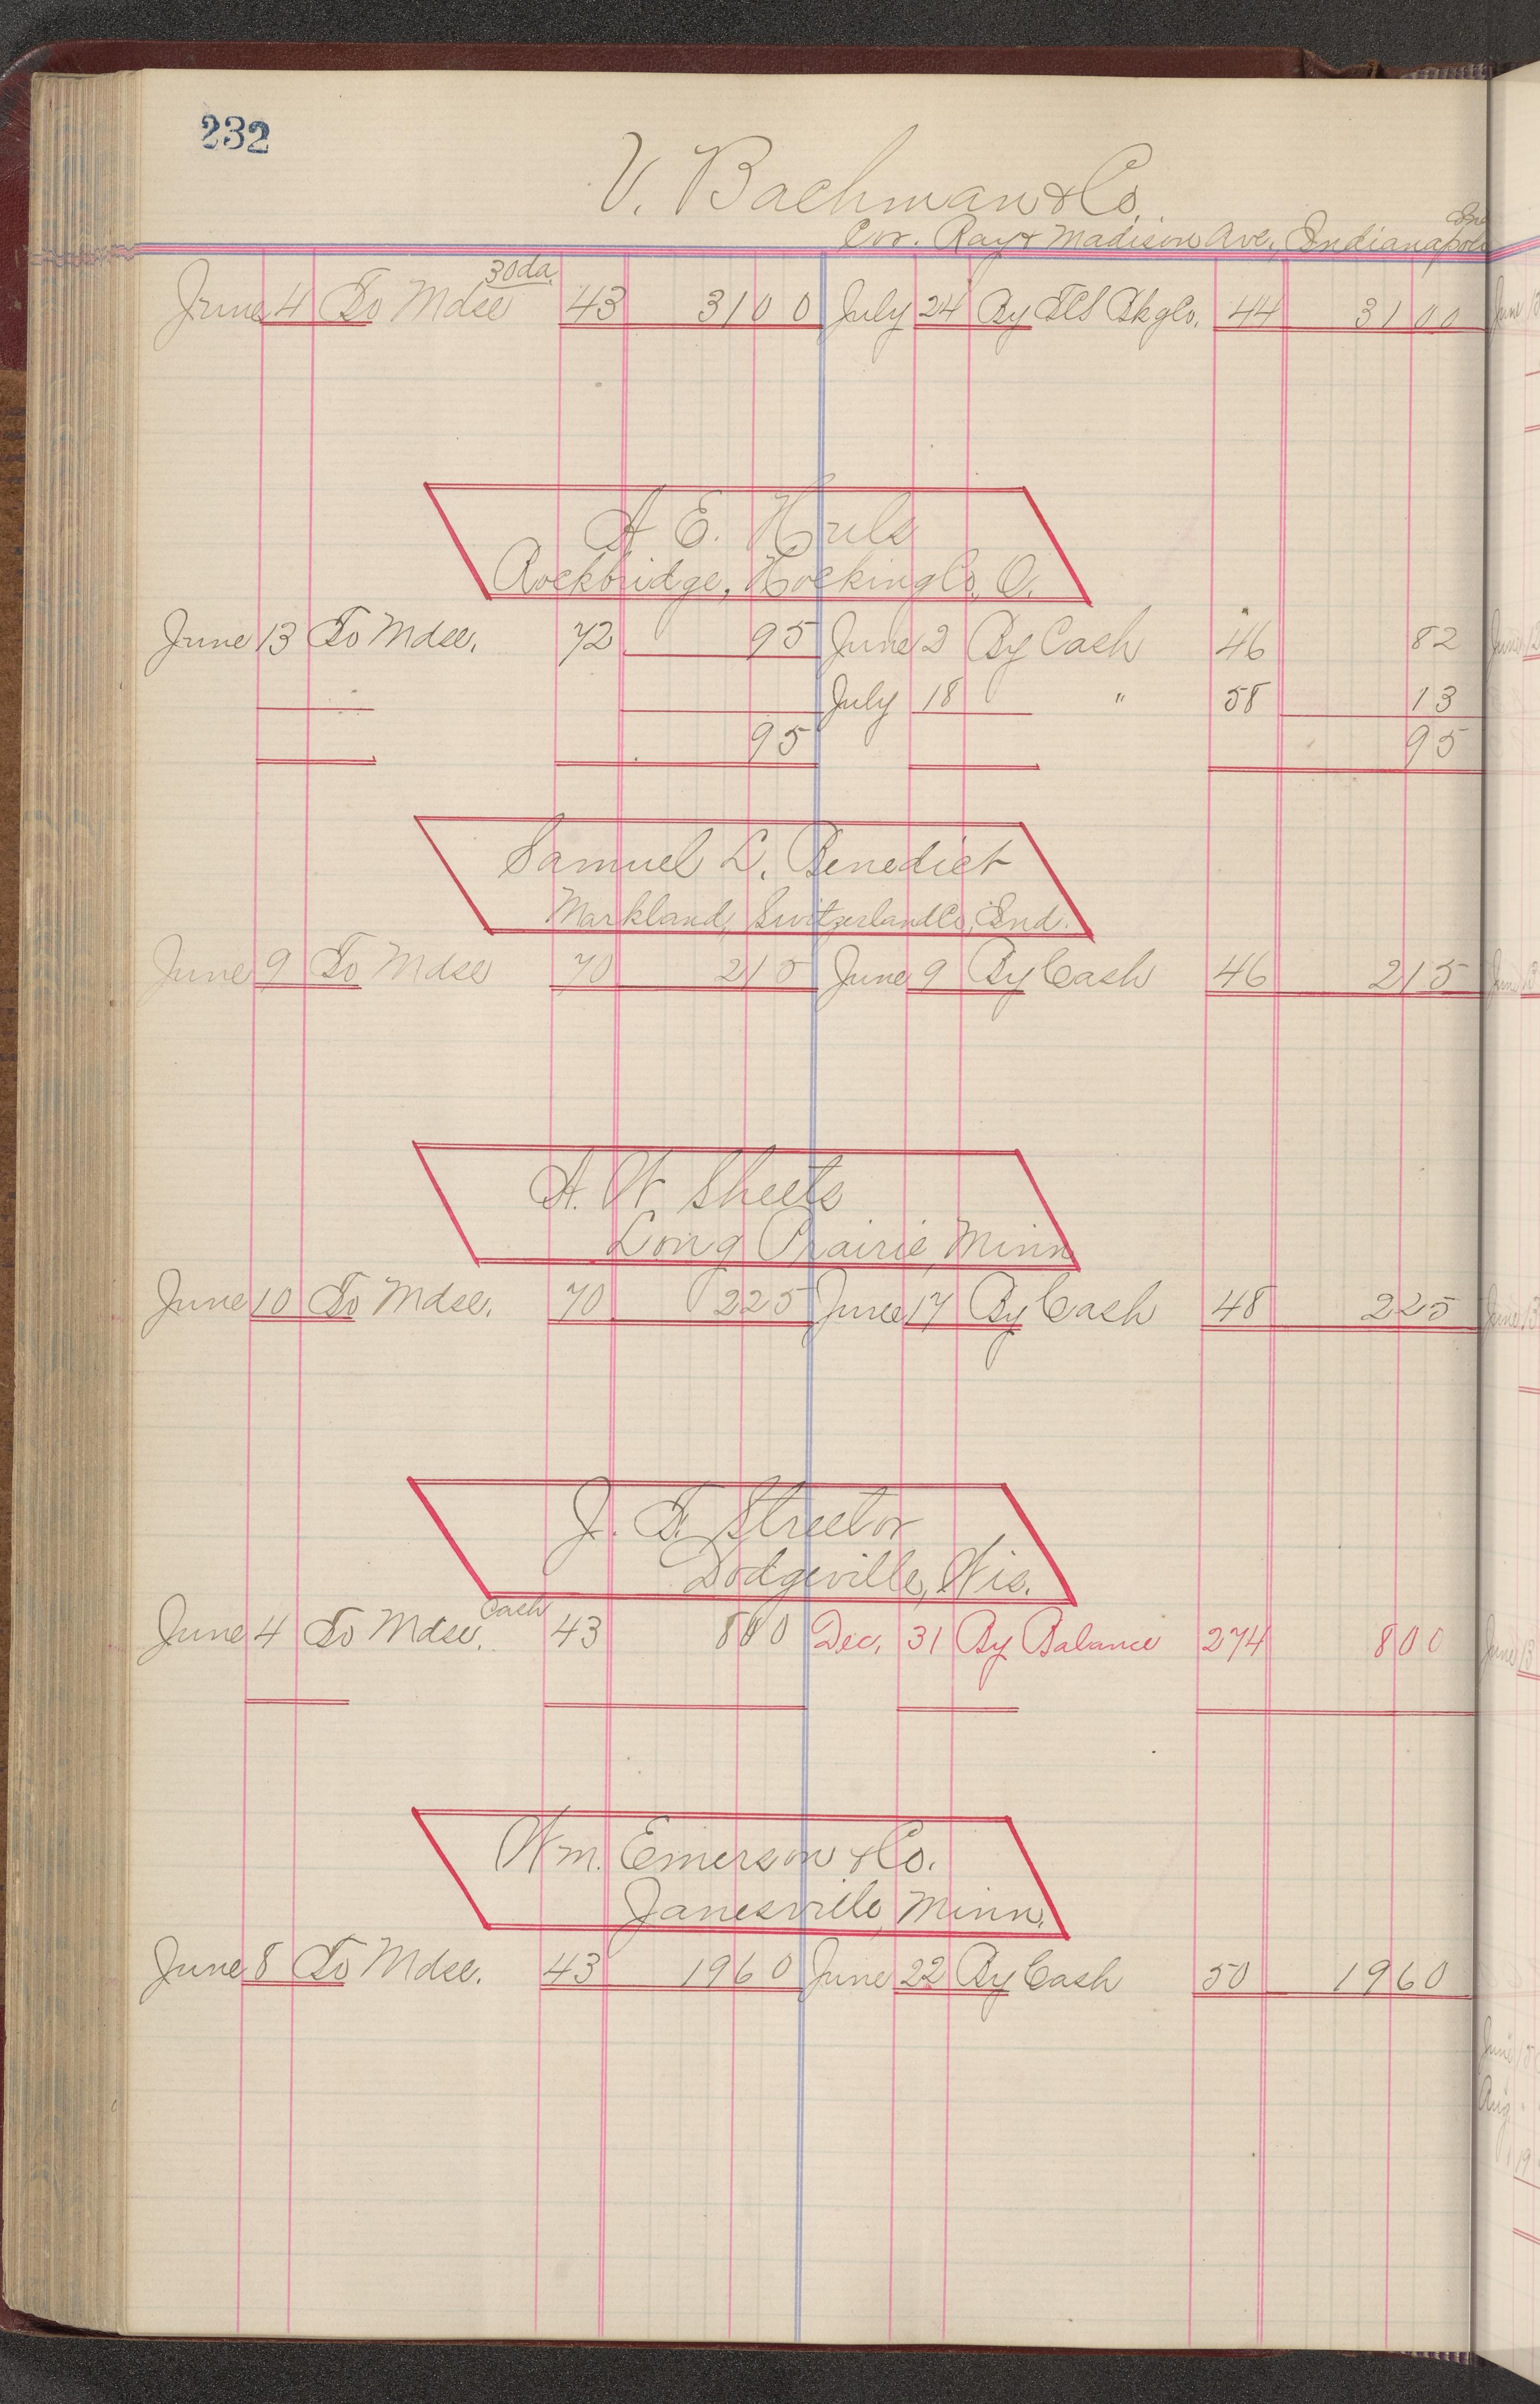 232
V. Bachman & Co.
Cor. Ray & Madison Ave, Indianapolis Ind
30da
June 4 To Mdse 43 31 00 July 24 By Bkg Co. 44 31 00
A. E.
Rockbridge, Hocking Co. O.
June 13 To Mdse. 72 95 June 2 By Cash 46 82
July 18 " 58 13
95 95
Samuel L. Benedict
Markland, Switzerland Co, Ind.
June 9 To Mdse 70 2 15 June 9 By Cash 46 2 15
A. W. Sheets
Long Prairie, Minn
June 10 To Mdse. 70 2 25 June 17 By Cash 48 2 25
J. F. Streetor
Dodgeville, Wis.
Cash
June 4 To Mdse. 43 8 00 Dec. 31 By Balance 274 8 00
Wm. Emerson & Co.
Janesville, Minn.
June 8 To Mdse. 43 19 60 June 22 By Cash 50 19 60